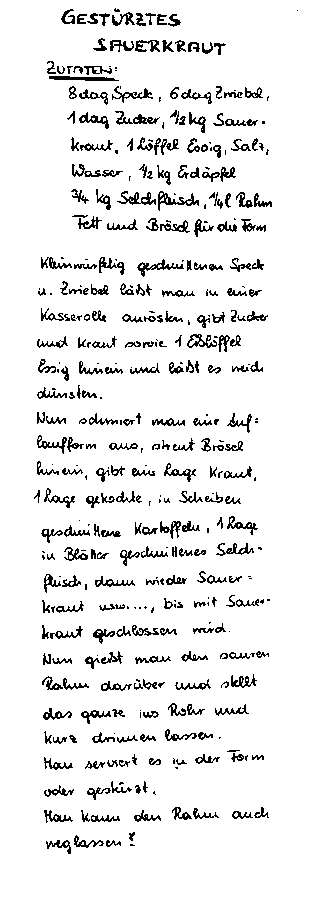 GESTÜRZTES
SAUERKRAUT
ZUTATEN:
8 dag Speck, 6 dag Zwiebel,
1 dag Zucker, 1/2 kg Sauer-
kraut, 1 Löffel Essig, Salz,
Wasser, 1/2 kg Erdäpfel
3/4 kg Selchfleisch, 1/4 l Rahm
Fett und Brösel für die Form
Kleinwürfelig geschnittenen Speck
u. Zwiebel läßt man in einer
Kasserolle anrösten, gibt Zucker
und Kraut sowie 1 Eßlöffel
Essig hinein und läßt es weich
dünsten.
Nun schmiert man eine Auf=
laufform aus, streut Brösel
hinein, gibt eine Lage Kraut,
1 Lage gekochte, in Scheiben
geschnittene Kartoffeln, 1 Lage
in Blätter geschnittenes Selch-
fleisch, dann wieder Sauer=
kraut usw...., bis mit Sauer-
kraut geschlossen wird.
Nun gießt man den sauren
Rahm darüber und stellt
das ganze ins Rohr und
kurz drinnen lassen.
Man serviert es in der Form
oder gestürzt.
Man kann den Rahm auch
weglassen!